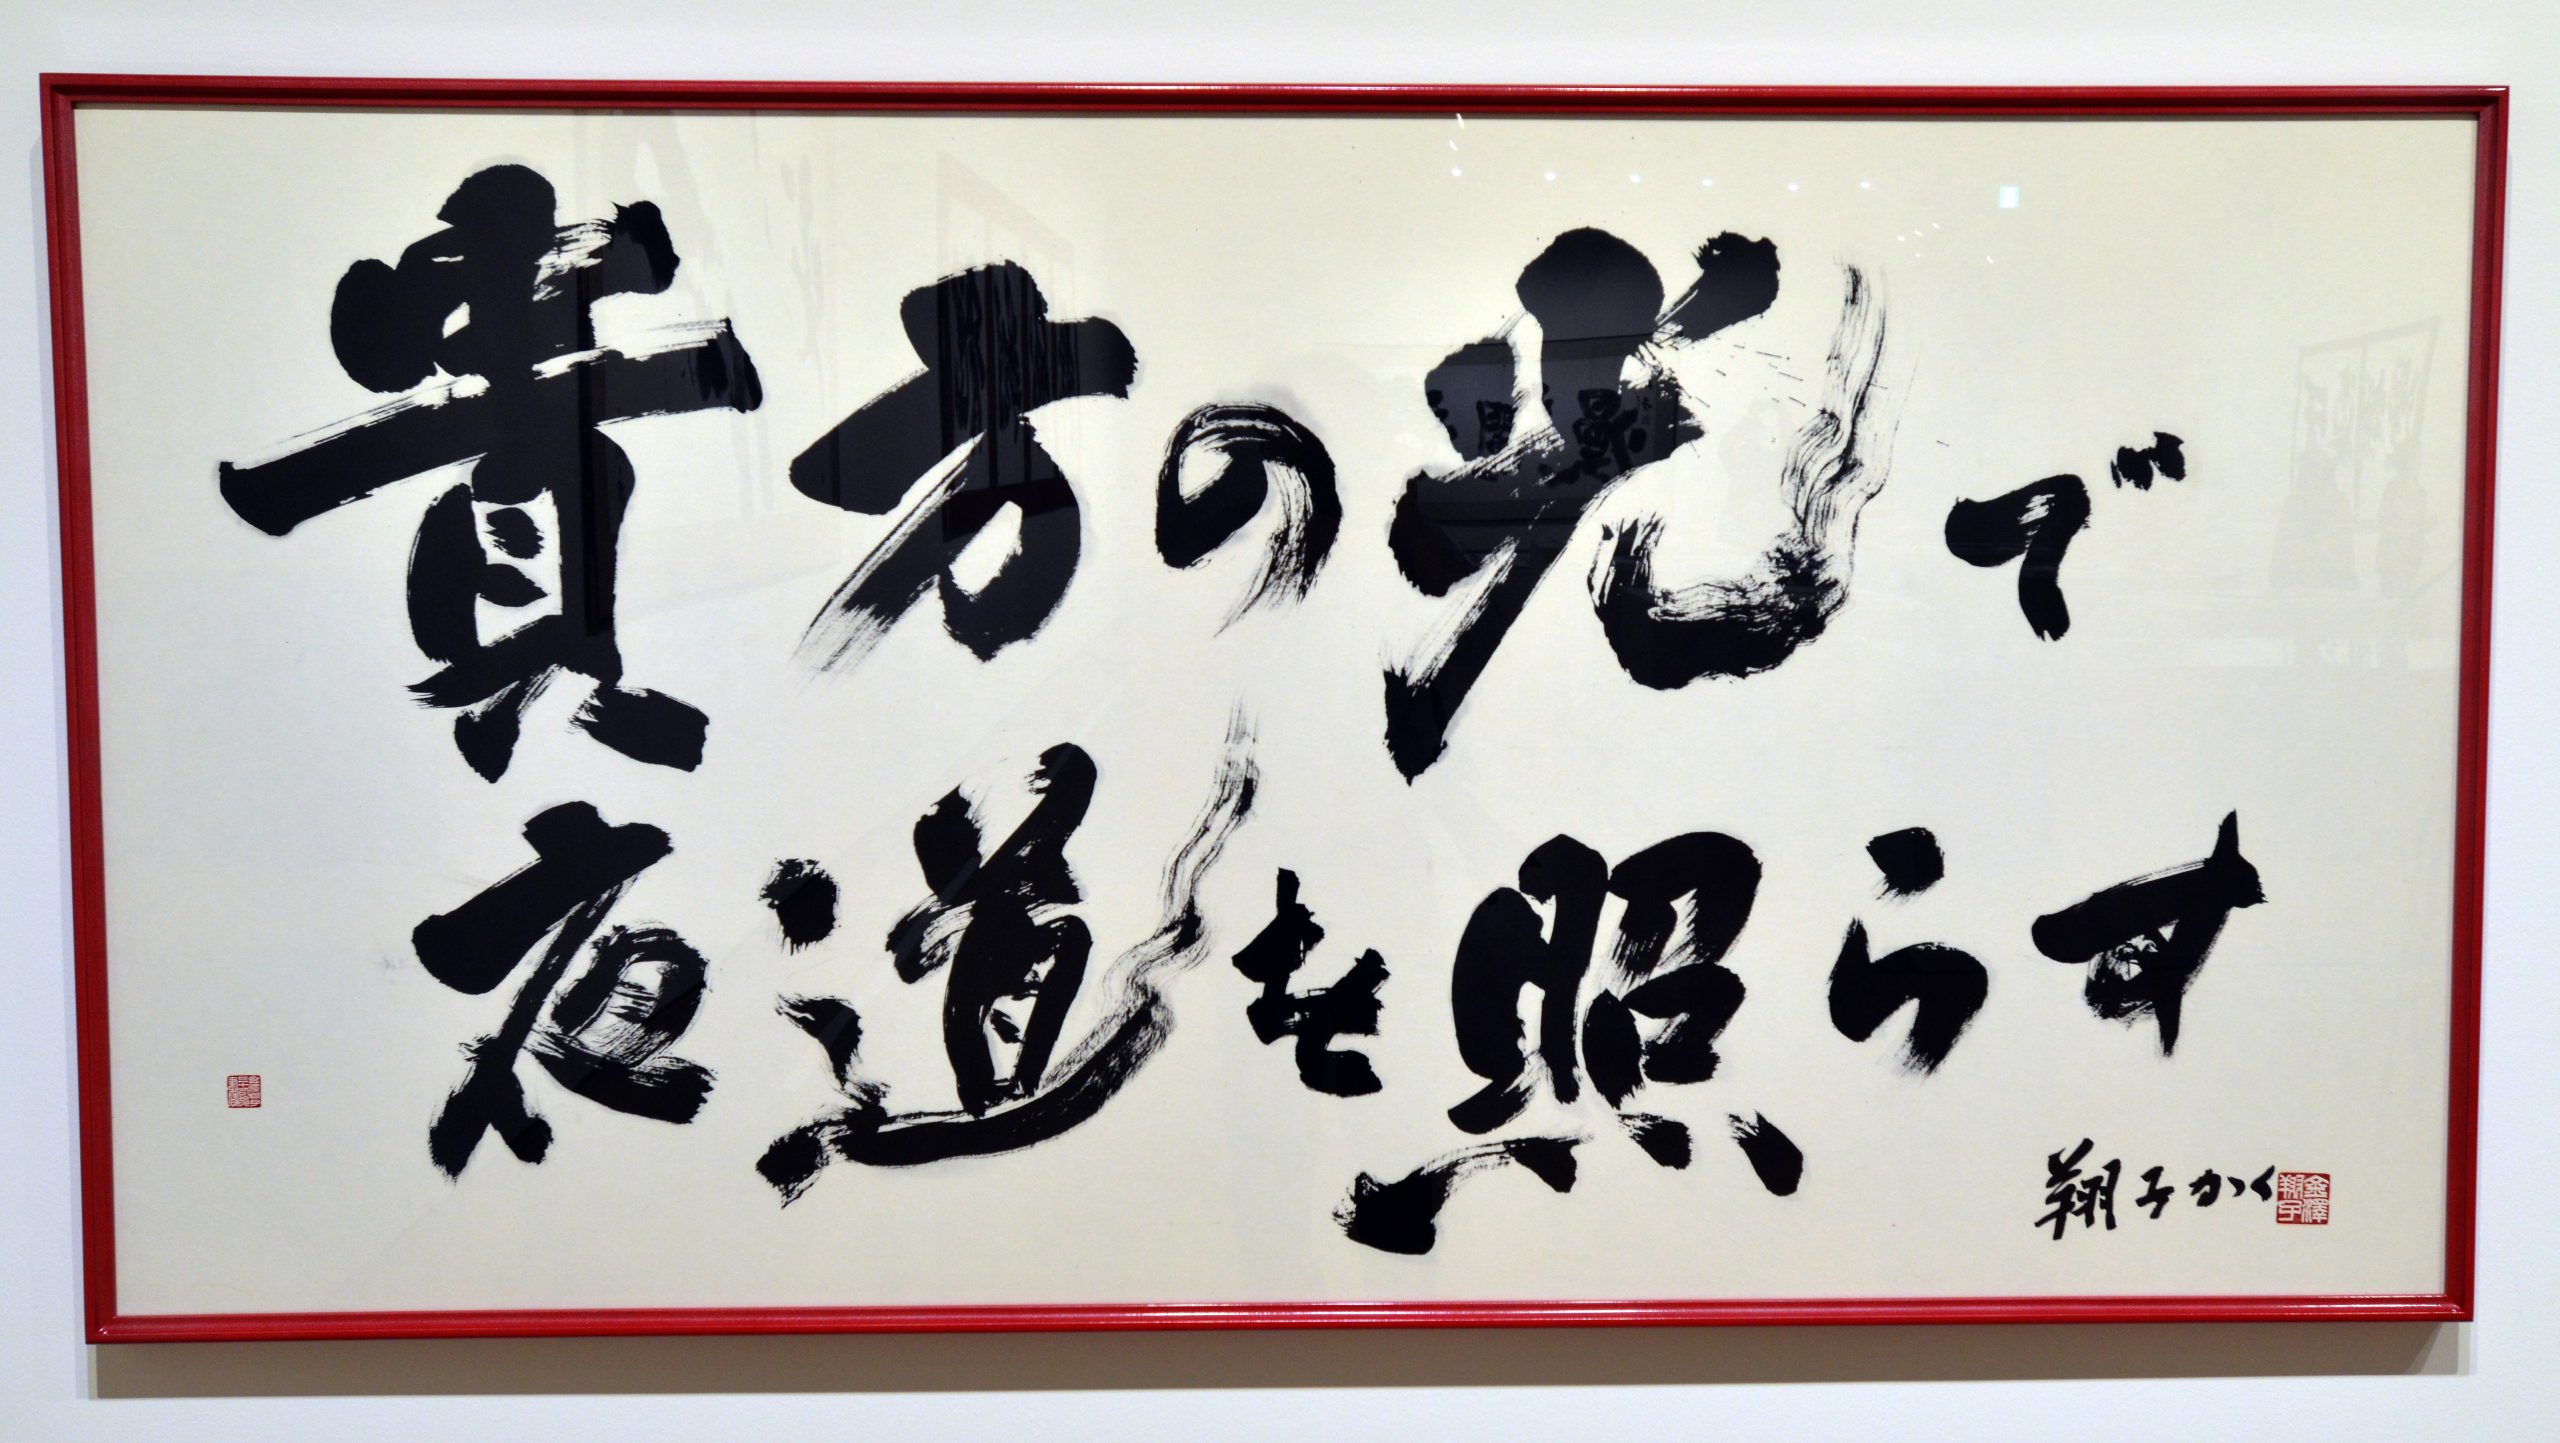 貴方の光で
夜道を照らす
翔子かく
金澤翔子